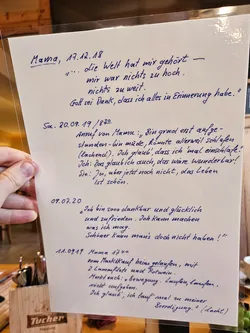 Mama, 17.12.18
"... die Welt hat mir gehört —
mir war nichts zu hoch,
nichts zu weit.
Gott sei Dank, dass ich alles in Erinnerung habe."
So. 20.04.19 / 8
Anruf von Mama: „Bin grad erst aufge-
standen - bin müde, könnte allerweil schlafen
(lachend). Ich glaub', dass ich mal einschlafe!
Ich: Das glaub ich auch, das wäre wunderbar!
Sie: Ja, aber jetzt noch nicht, das Leben
ist schön.
09.03.20
„Ich bin sooo dankbar und glücklich
und zufrieden. Ich kann machen
was ich mag.
Schöner kann man's doch nicht haben!"
11.09.19 Mama
zum Marktkauf heim gelaufen, mit
2
Markt auch: „Bewegung - laufen, laufen,
nicht aufgeben.
Ich glaub', ich lauf mal zu meiner
Beerdigung." (lacht)
Tucher